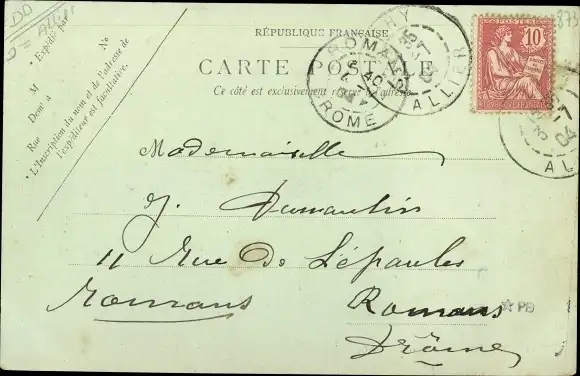 RÉPUBLIQUE FRANÇAISE
CARTE POSTALE
Ce côté est exclusivement réservé à l'adresse
Expédié par
M
Dem! à
Rue
L'Inscription du nom et de l'adresse de
l'expéditeur est facultative.
DD
ALLIER
ROMANS
DROME
ALLIER
04
POSTES
10
Mademoiselle
J. Dumantin
11 Rue de L'épaules
Romans Romans
Drôme
PD